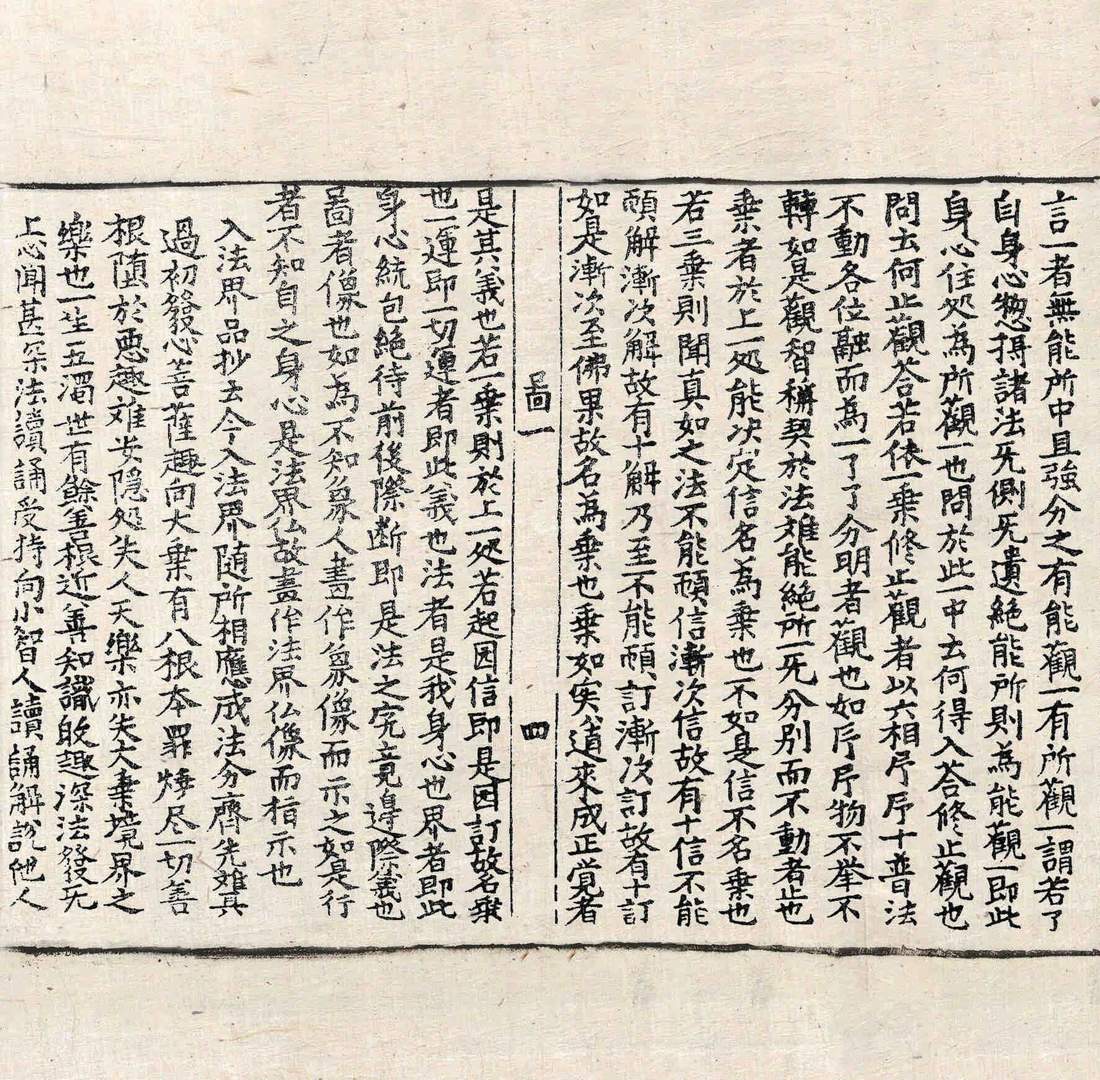 言一者無能所中且強分之有能觀一有所觀一謂若了
自身心惣掃諸法旡側旡遺絶能所則為能觀一即此
身心住処為所觀一也問於此一中云何得入答修止觀也
問云何止觀答若依一乗修止觀者以六相序序十普法
不動各位融而為一了了分明者觀也如序序物不挙不
轉如是觀智稱契於法難能絶所一旡分别而不動者止也
乗者於上一処能决㝎信名為乗也不如是信不名乗也
若三乗則聞真如之法不能頓信漸次信故有十信不能
頓解漸次解故有十解乃至不能頓訂漸次訂故有十訂
如是漸次至佛果故名為乗也乗如実道來成正覚者
啚一 四
是其義也若一乗則於上一処若起因信即是因訂故名乗
也一運即一切運者即此義也法者是我身心也界者即此
身心統包絶待前後際断即是法之究竟邊際義也
啚者像也如為不知象人畫作象像而示之如是行
者不知自之身心是法界仏故畫作法界仏像而指示也
入法界品抄云今入法界随所相應成法分齊先難其
過初發心菩薩趣向大乗有八根本罪焼尽一切善
根随於悪趣难安隠処失人天樂亦失大乗境界之
樂也一生五濁世有餘善根近善知識敢趣深法發旡
上心聞甚深法讀誦受持向小智人讀誦解說他人